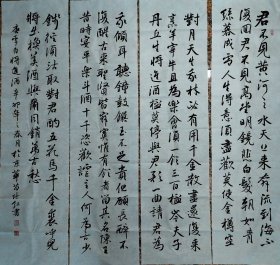 君不見黃河之水天上来奔流到海不
復回君不見高堂明鏡悲白髮朝如青
絲暮成雪人生得意須盡歡莫使金樽空
對月天生我材必有用千金散盡還復来
烹羊宰牛且為樂會須一飲三百杯岑夫子
丹丘生將進酒杯莫停與君歌一曲請君為
我傾耳聽鐘鼓饌玉不足貴但願長醉不
復醒古来聖賢皆寂寞惟有飲者留其名陳王
昔時宴平樂斗酒十千恣歡謔主人何為言少
錢徑須沽取對君酌五花馬千金裘呼兒
將出換美酒與爾同銷萬古愁
李白將進酒辛卯年春月於